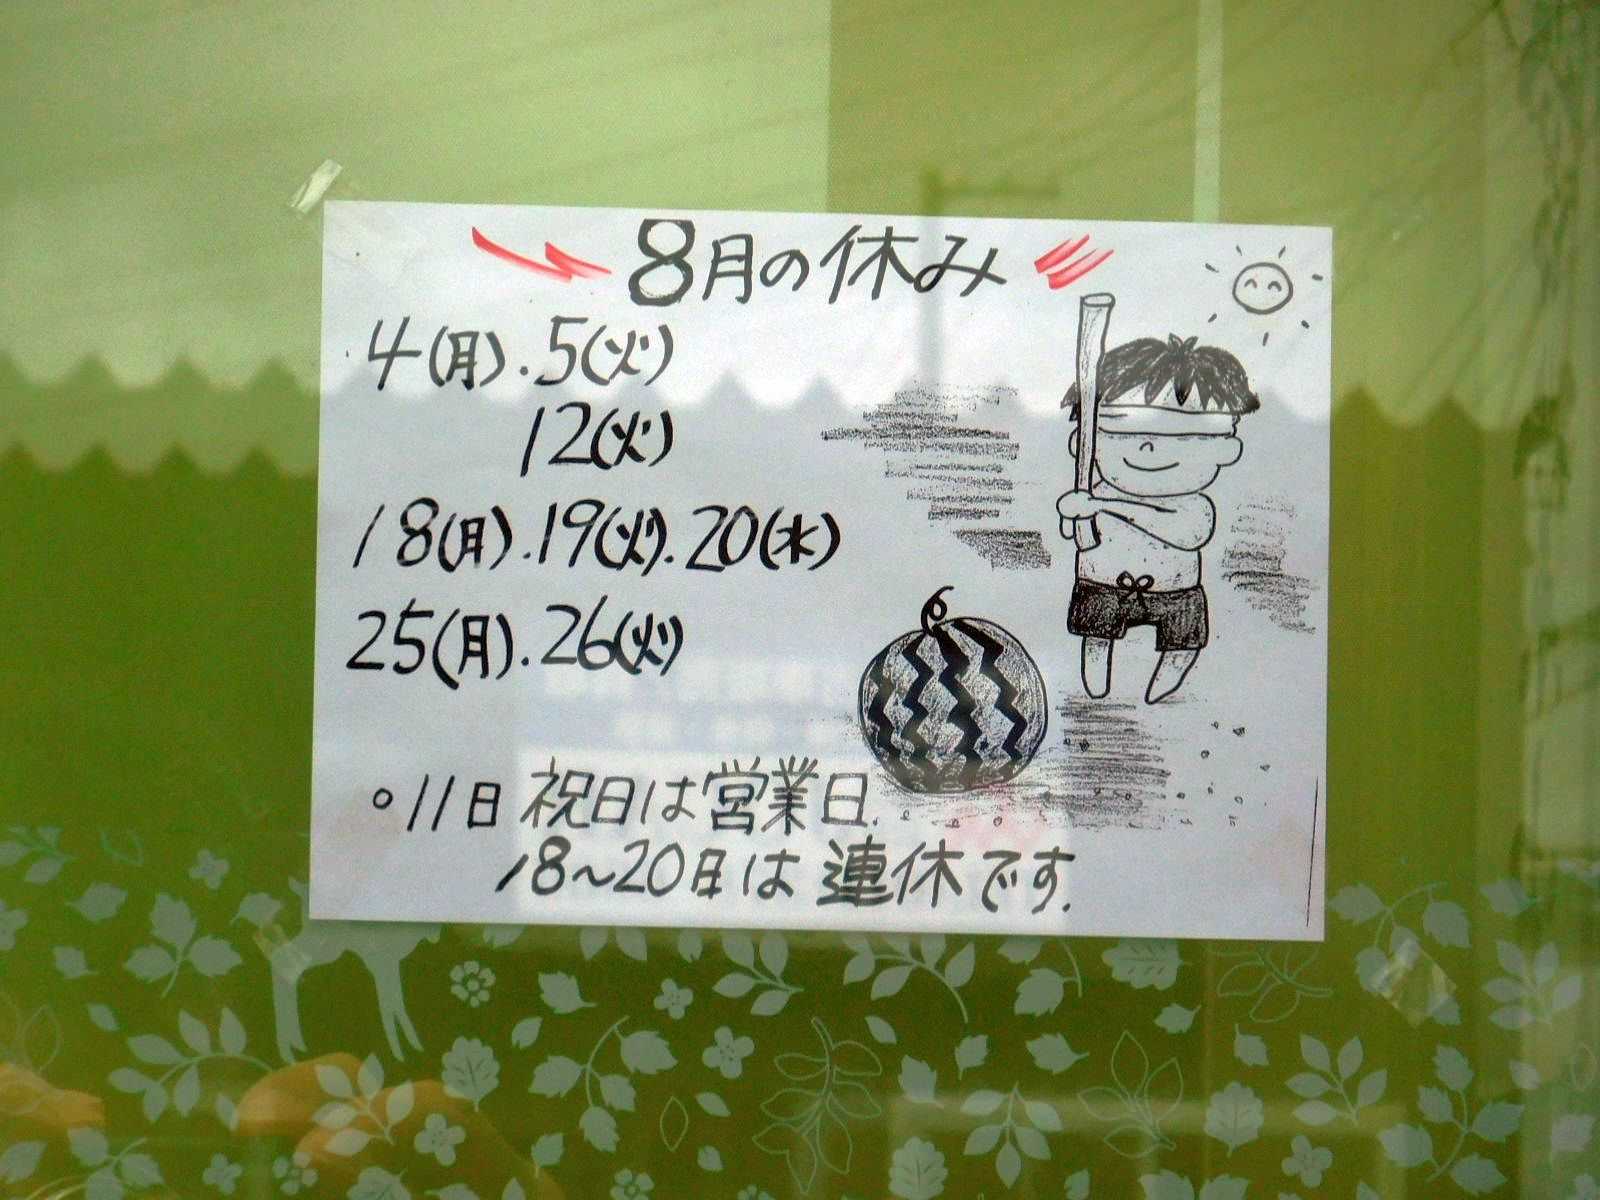 8月の休み
4(月).5(火)
12(火)
18(月).19(火).20(水)
25(月).26(火)
○11日 祝日は営業日.
18～20日は連休です.